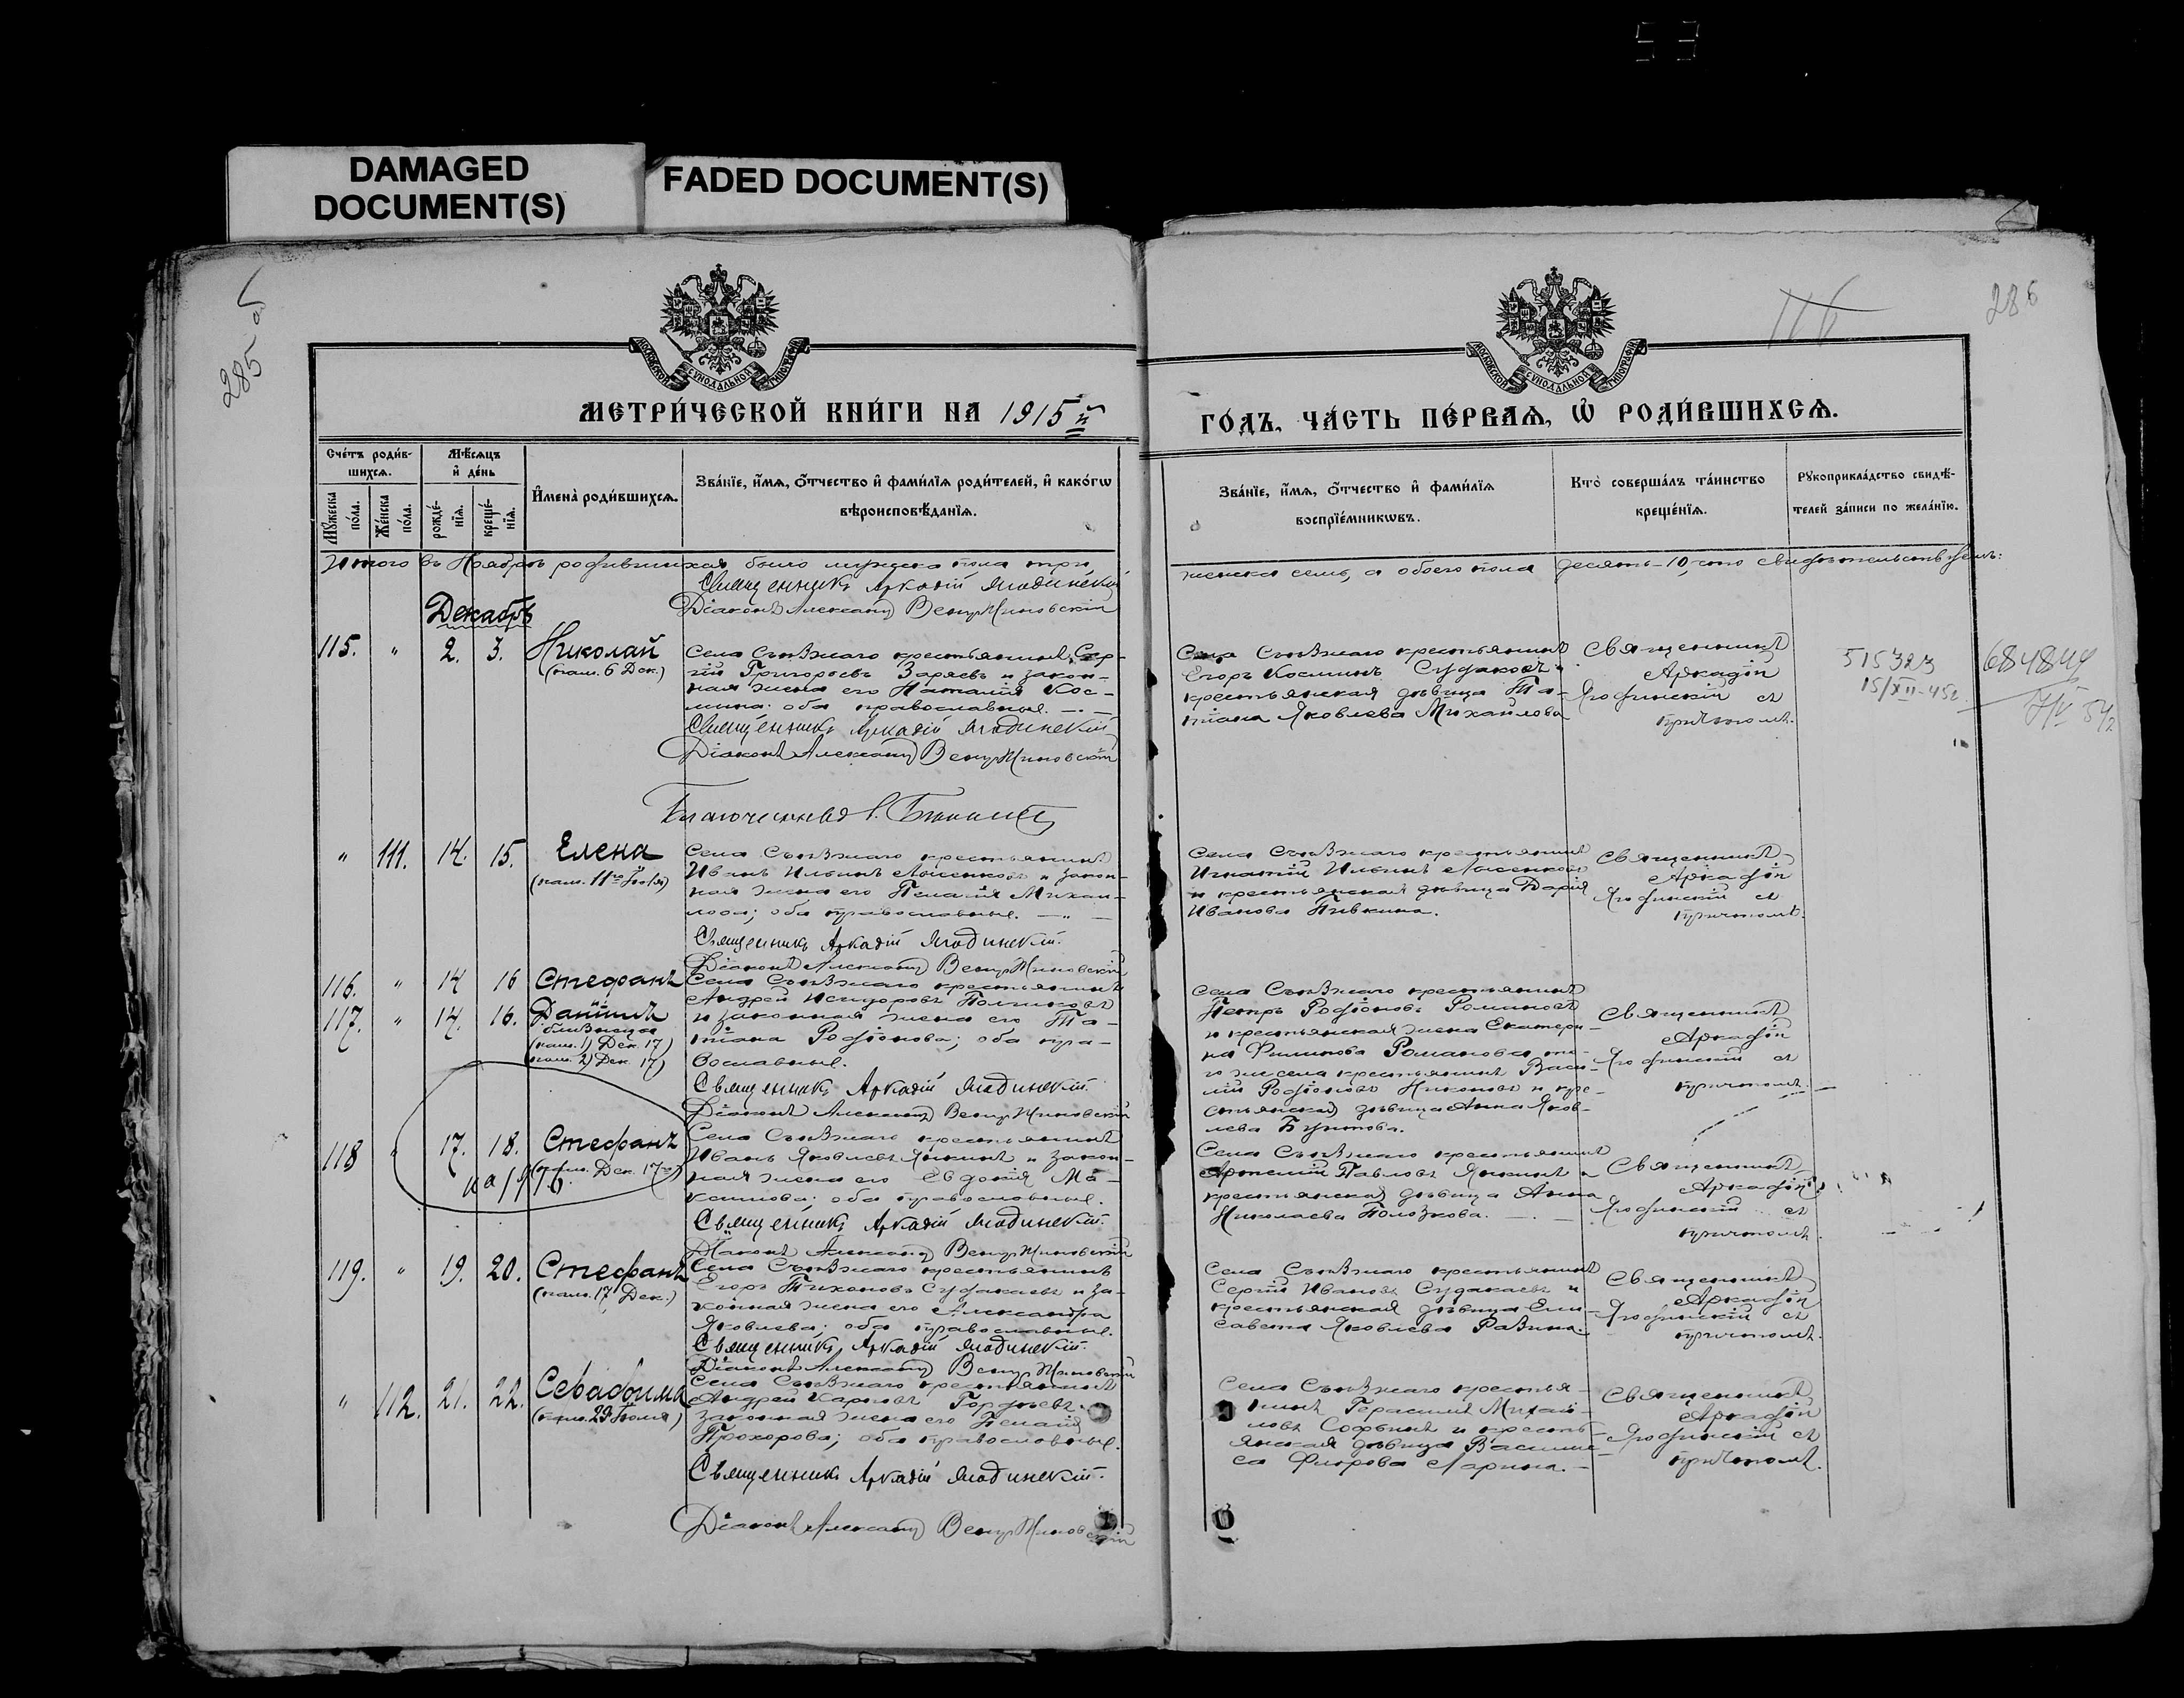 DAMAGED
DOCUMENT(S)
FADED DOCUMENT(S)
285 об
286
МЕТРИ́ЧЕСКОЙ КНИ́ГИ НА 1915 й
Сче́тъ роди́в-
шихсѧ.
Мѣ́сѧцъ
и҆ де́нь
Мꙋ́жеска
по́ла.
Же́нска
по́ла.
рожде́-
нїѧ.
креще́-
нїѧ.
И҆мена̀ роди́вшихсѧ.
Зва́нїе, и҆́мѧ, ѻ҆́тчество и҆ фами́лїѧ роди́телей, и҆ како́гѡ
вѣроисповѣ́данїѧ.
Итого въ Ноябрѣ родившихся было мужска пола три,
Священникъ Аркадій Ягодинскій
Діаконъ Александр Венустиновскій
Декабрь
115. " 2. 3. Николай
(пам. 6 Дек.)
Села Съѣзжаго крестьянинъ Сер-
гій Григорьевъ Заряевъ и закон-
ная жена его Наталія Кос-
мина; оба православные.
Священникъ Аркадій Ягодинскій
Діаконъ Александр Венустиновскій
Благочинный
" 111. 14. 15. Елена
Села Съѣзжаго крестьянинъ
Иванъ Ильинъ Лысенковъ и закон-
ная жена его Пелагія Михаи-
лова; оба православные.
Священникъ Аркадій Ягодинскій.
Діаконъ Александр Венустиновскій
116. " 14 16 Стефанъ
117. " 14. 16. Даніилъ
близнецы
(пам. 1) Дек. 17)
пам. 2) Дек. 17)
Села Съѣзжаго крестьянинъ
Андрей Исидоровъ
и законная жена его Та-
тіана Родіонова; оба пра-
вославные.
Священникъ Аркадій Ягодинскій.
Діаконъ Александр Венустиновскій
118 " 17. 18. Стефанъ
(пам. Дек. 17го)
на 1916.
Села Съѣзжаго крестьянинъ
Иванъ Яковлевъ Янкинъ и закон-
ная жена его Евдокія Ма-
ксимова; оба православные.
Священникъ Аркадій Ягодинскій.
Діаконъ Александр Венустиновскій
119. " 19. 20. Стефанъ
(пам. 17 Дек.)
Села Съѣзжаго крестьянинъ
Егоръ Тихоновъ Судакаевъ и за-
конная жена его Александра
Яковлева; оба православные.
Священникъ Аркадій Ягодинскій.
Діаконъ Александр Венустиновскій
" 112. 21. 22. Серафима
(пам. 29 Іюля)
Села Съѣзжаго крестьянинъ
Андрей Карповъ Гордѣевъ и
законная жена его Пелагія
Прохорова; оба православные.
Священникъ Аркадій Ягодинскій.
Діаконъ Александр Венустиновскій
ГО́ДЪ, ЧА́СТЬ ПЕ́РВАѦ, Ѡ҆ РОДИ́ВШИХСѦ.
Зва́нїе, и҆́мѧ, ѻ҆́тчество и҆ фами́лїѧ
воспрїе́мникѡвъ.
Кто̀ соверша́лъ та́инство
креще́нїѧ.
Рꙋкоприкла́дство свидѣ́-
телей за́писи по жела́нїю.
женска семь, а обоего пола десять-10, что свидѣтельствуемъ:
Села Съѣзжаго крестьянинъ
Егоръ Косминъ Судаковъ и
крестьянская дѣвица Та-
тіана Яковлева Михайлова
Священникъ
Аркадій
Ягодинскій съ
причтомъ.
515323
15/XII-45г
684844
Села Съѣзжаго крестьянинъ
Игнатій Ильинъ Лысенковъ
и крестьянская дѣвица Дарія
Иванова Пивкина.
Священникъ
Аркадій
Ягодинскій съ
причтомъ.
Села Съѣзжаго крестьянинъ
Петръ Родіоновъ Романовъ
и крестьянская жена Екатери-
на Филипова Романова, то-
го же села крестьянинъ Васи-
лій Родіоновъ Никоновъ и кре-
стьянская дѣвица Анна Яков-
лева
Священникъ
Аркадій
Ягодинскій съ
причтомъ.
Села Съѣзжаго крестьянинъ
Артемій Павловъ Янкинъ и
крестьянская дѣвица Анна
Николаева Полозкова.
Священникъ
Аркадій
Ягодинскій съ
причтомъ.
Села Съѣзжаго крестьянинъ
Сергій Ивановъ Судакаевъ и
крестьянская дѣвица Ели-
савета Яковлева Разина.
Священникъ
Аркадій
Ягодинскій съ
причтомъ.
Села Съѣзжаго крестья-
нинъ Герасимъ Михай-
ловъ Софьинъ и кресть-
янская дѣвица Васили-
са Флорова Ларина.
Священникъ
Аркадій
Ягодинскій съ
причтомъ.